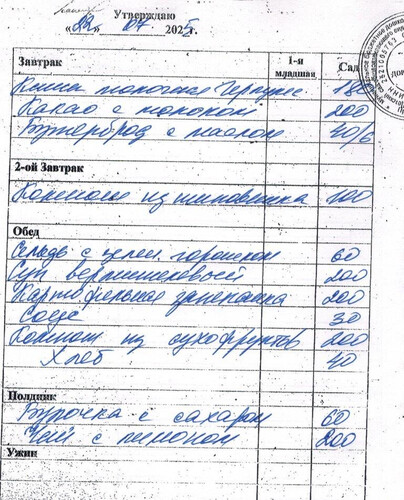 Утверждаю
«22» 07 2025 г.
Завтрак 1-я младшая Сад
Каша молочная
Какао с молоком 200
Бутерброд с маслом 40/6
2-ой Завтрак
Компот из шиповника 100
Обед
Сельдь с зелен. горошком 60
Суп вермишелевый 200
Картофельная запеканка 200
Соус 30
Компот из сухофруктов 200
Хлеб 40
Полдник
Булочка с сахаром 60
Чай с лимоном 200
Ужин